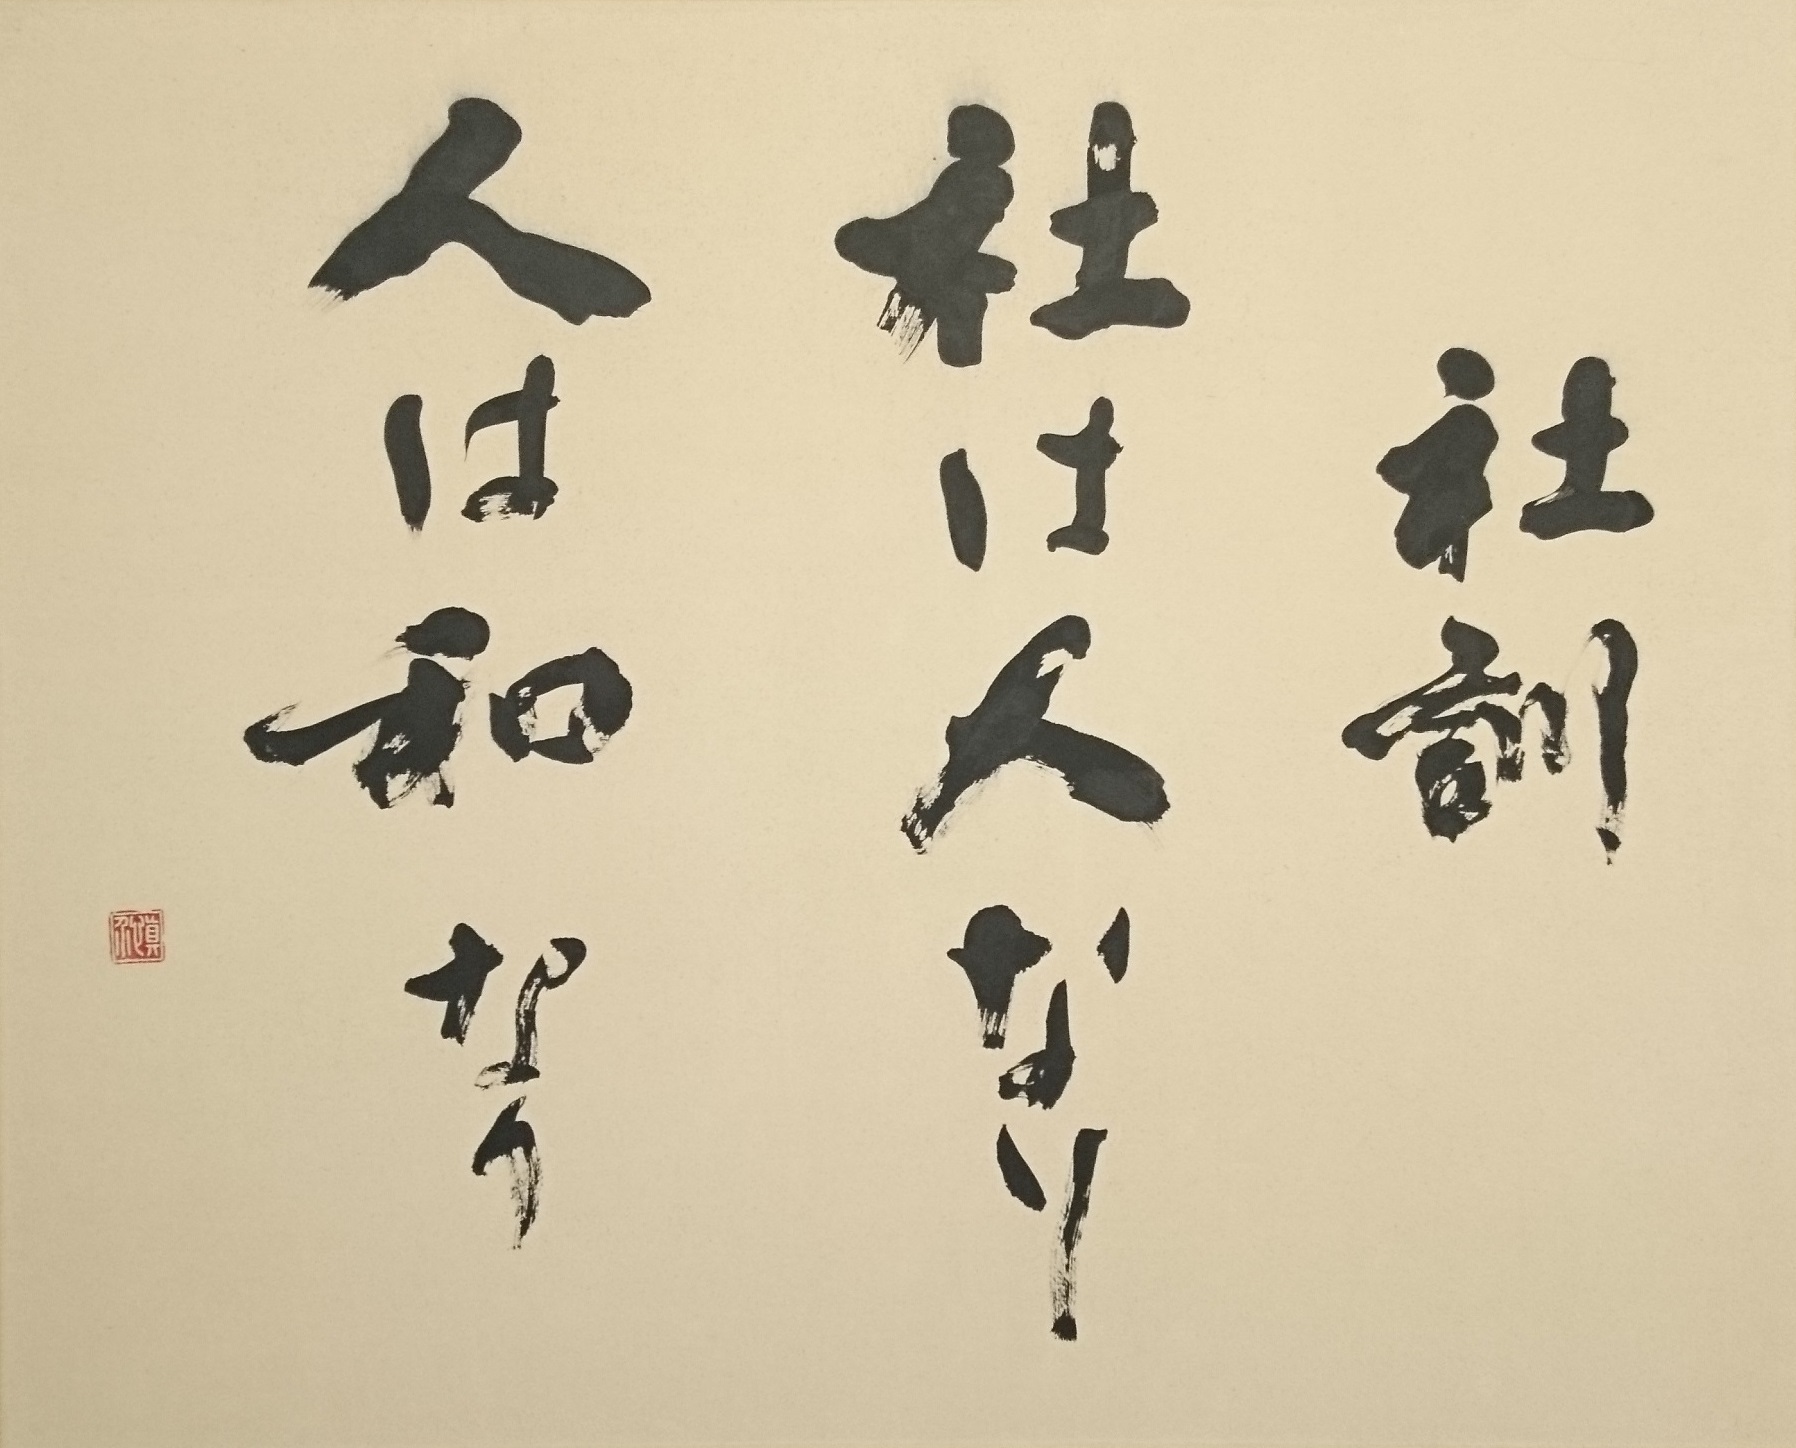 社訓
社は人なり
人は和なり